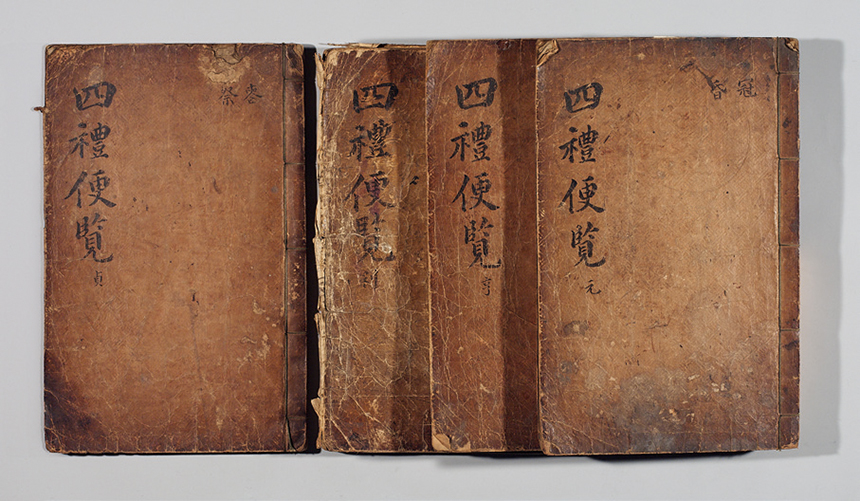 冠
昏
四禮便覽
元
四禮便覽
亨
四禮便覽
利
喪
祭
四禮便覽
貞